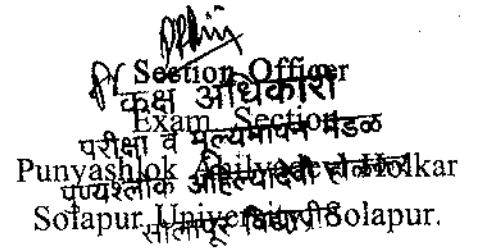 Section Officer
कक्ष अधिकारी
Exam Section
परीक्षा व मूल्यमापन मंडळ
Punyashlok Ahilyadevi Holkar
पुण्यश्लोक अहिल्यादेवी होळकर
Solapur University, Solapur.
सोलापूर विद्यापीठ